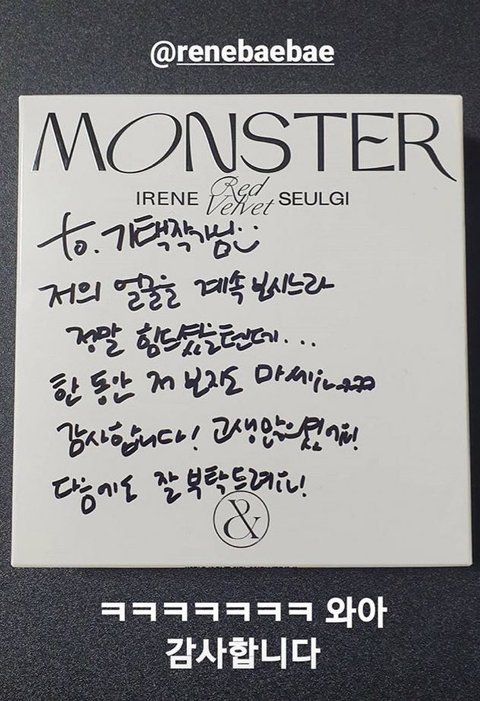 @renebaebae
MONSTER
IRENE Red Velvet SEULGI
to. 기택작가님
저의 얼굴을 계속 보시느라
정말 힘드셨을텐데...
한 동안 저 보지도 마세요ㅋㅋㅋ
감사합니다! 고생많으셨어요!
다음에도 잘 부탁드려요!
&
ㅋㅋㅋㅋㅋㅋㅋ 와아
감사합니다